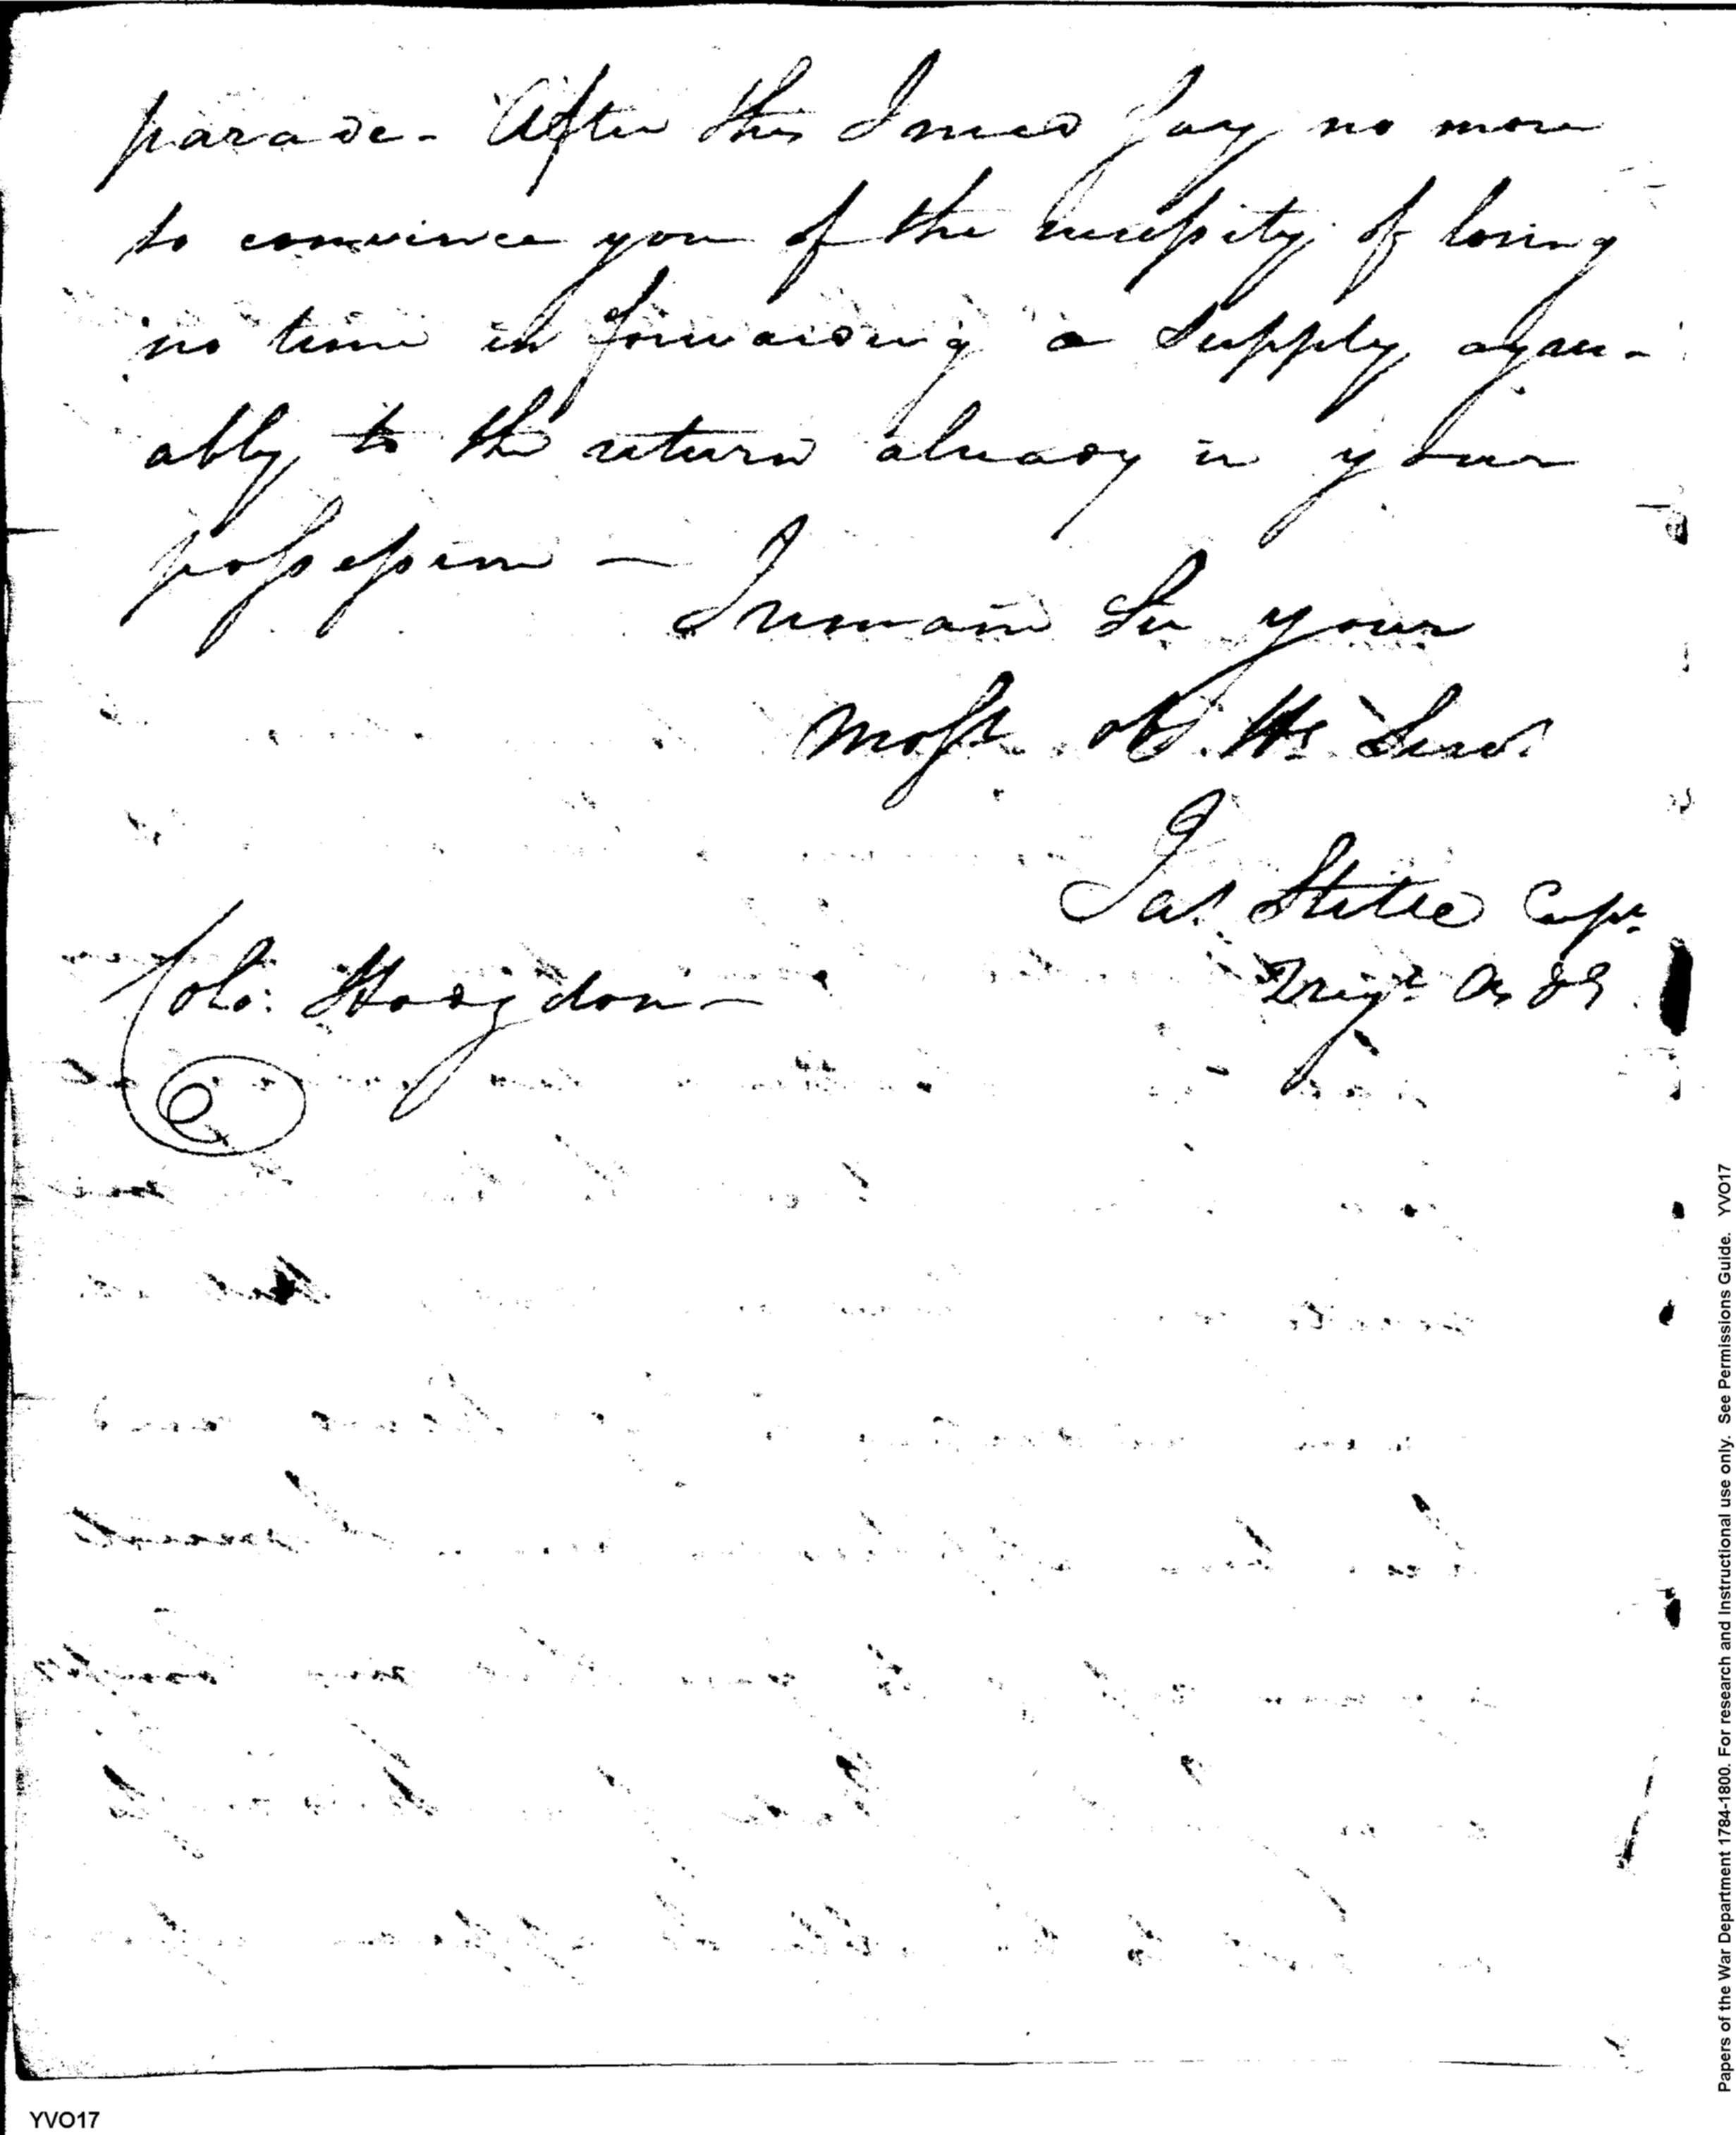 parade - After this I need say no more
to convince you of the necessity of losing
no time in forwarding a supply agree-
ably to the return already in your
possession —
I remain Sir your
most ob. He Serv.
Jas Stelle Capt.
Colo: Hodgdon —
YVO17
Papers of the War Department 1784-1800. For research and Instructional use only. See Permissions Guide. YVO17